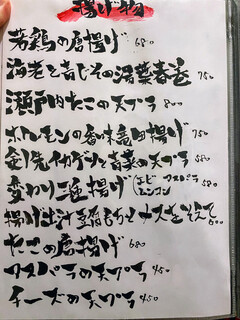 揚げ物
若鶏の唐揚げ 680
海老と青じその湯葉春巻 750
瀬戸内たこの天プラ 800
ホルモンの香味竜田揚げ 750
剣先イカゲソと青菜の天プラ 580
変わり三種揚げ(エビ アスパラ レンコン 580
揚げ出汁豆腐もちとナスを添えて 600
たこの唐揚げ 680
アスパラの天プラ 450
チーズの天プラ 450